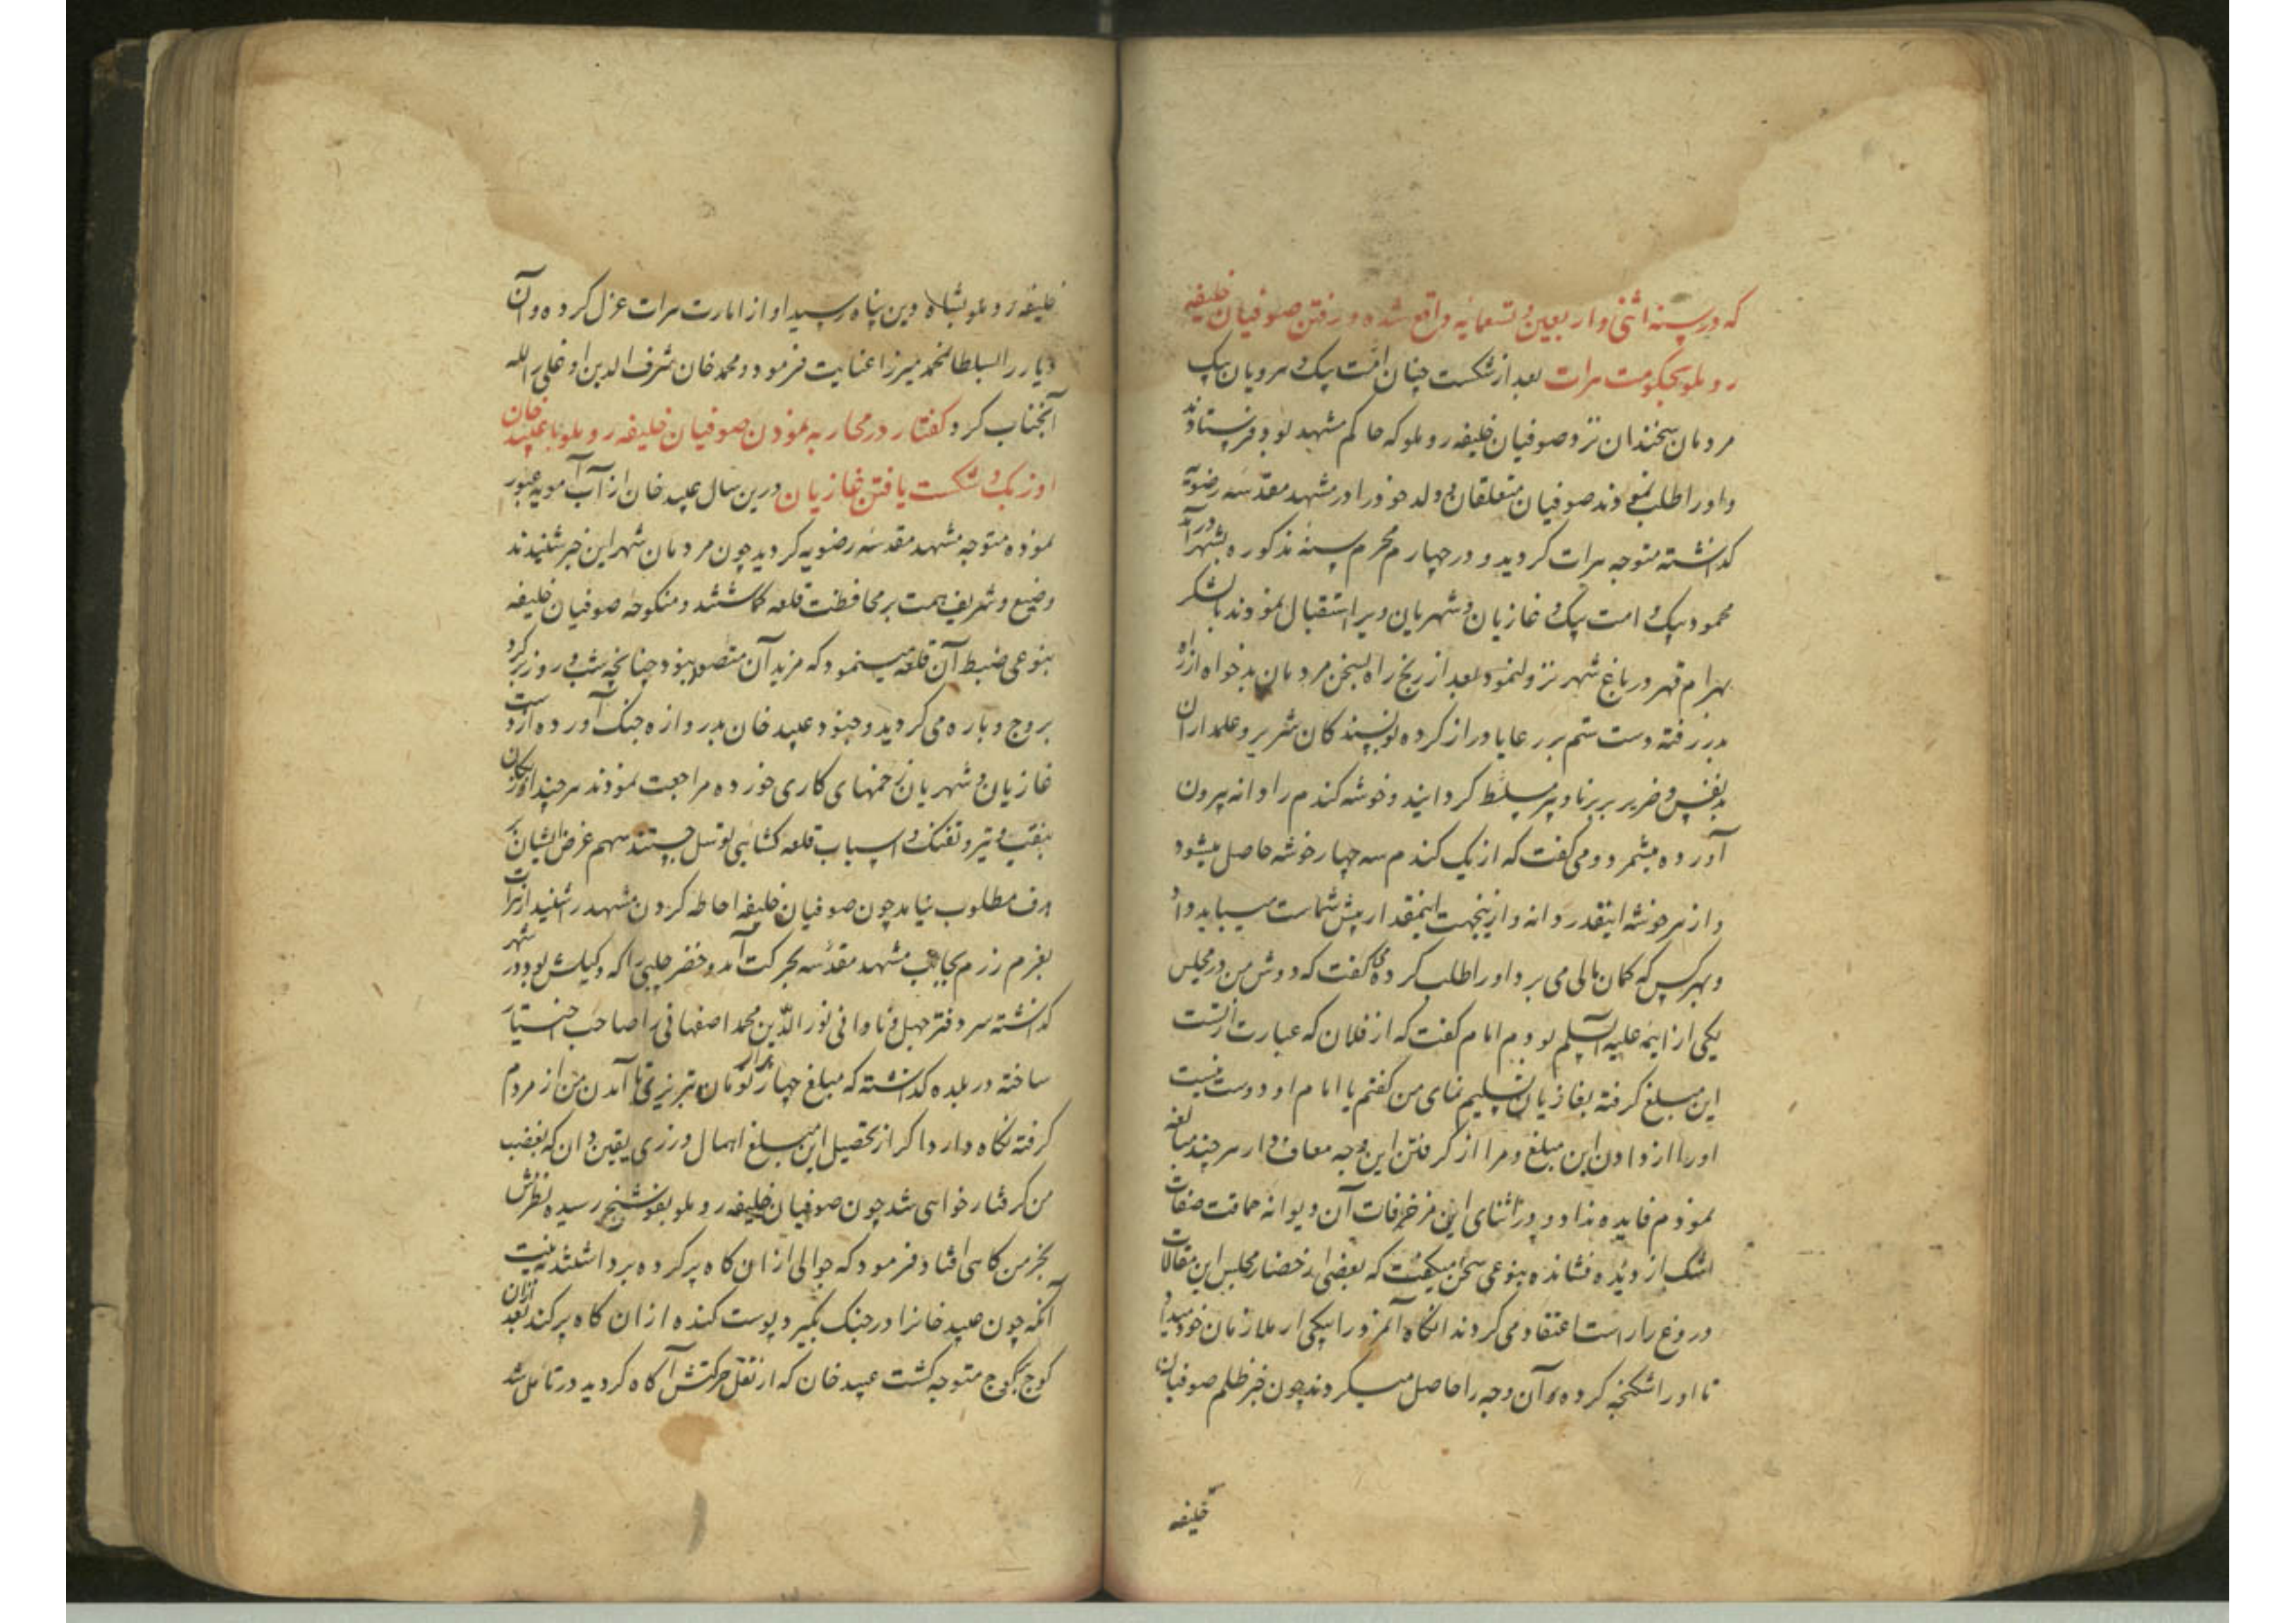 که در سنه اثنی و اربعین و تسعمائه واقع شده و رفتن صوفیان خلیفه
روملو بحکومت هرات بعد از شکست چنان امت بیک و مردمان
مردمان سخندان نزد صوفیان خلیفه روملو که حاکم مشهد بود فرستادند
و او را طلب نمودند صوفیان متعلقان و ولد خود را در مشهد مقدسه رضویه
گذاشته متوجه هرات گردید و در چهارم محرم سنه مذکوره بشهر درآمد
محمود بیک و امت بیک و غازیان و شهریان ویرا استقبال نمودند با لشکر
بهرام قهر در باغ شهر نزول نمود بعد از رنج راه بسخن مردمان بدخواه از راه
بدر رفته دست ستم بر رعایا دراز کرده نویسندگان شریر و عملداران
بدنفس و ضریر بر برنا و پیر مسلط گردانید و خوشه کندم را دانه بیرون
آورده میشمرد و می گفت که از یک کندم سه چهار خوشه حاصل میشود
و از هر خوشه اینقدر دانه و ازینجهت اینمقدار پیش شماست میباید داد
و بهر کس که کمان مالی می برد او را طلب کرده می گفت که دوش من در مجلس
یکی از ایمه علیه السلم بودم امام گفت که از فلان که عبارت از تست
این مبلغ گرفته بغازیان تسلیم نمای من گفتم یا امام او دوست نیست
او را از دادن این مبلغ و مرا از گرفتن این وجه معاف دار هر چند مبالغه
نمودم فایده نداد و در اثنای این مزخرفات آن دیوانه حماقت صفات
اشک از دیده فشانده بنوعی سخن میگفت که بعضی از حضار مجلس این مقالات
دروغ را راست اعتقاد می کردند انگاه آنمزد را بیکی از ملازمان خود میداد
تا او را شکنجه کرده و آن وجه را حاصل میکردند چون خبر ظلم صوفیان
خلیفه
خلیفه روملو بشاه دین پناه رسید او از امارت هرات عزل کرده و آن
دیار را بسلطانمحمد میرزا عنایت فرمود و محمد خان شرف الدین اوغلی را لله
آنجناب کرد گفتار در محاربه نمودن صوفیان خلیفه روملو با عبید خان
اوزبک و شکست یافتن غازیان درین سال عبید خان از آب آمویه عبور
نموده متوجه مشهد مقدسه رضویه گردید چون مردمان شهر این خبر شنیدند
وضیع و شریف همت بر محافظت قلعه گماشتند و منکوحه صوفیان خلیفه
بنوعی ضبط آن قلعه مینمود که مزید آن متصور نبود چنانچه شب و روز بر گرد
بروج و باره می گردید و جنود عبید خان بدروازه جنگ آورده از دست
غازیان و شهریان زخمهای کاری خورده مراجعت نمودند هر چند اوزبکان
بنقب و تیر و تفنک و اسباب قلعه کشایی توسل جستند سهم غرض ایشان بر
هدف مطلوب نیامد چون صوفیان خلیفه احاطه کردن مشهد را شنید از هرات
بعزم رزم بجانب مشهد مقدسه بحرکت آمد و خضر چلبی را که وکیلش بود در شهر
گذاشته سر دفتر جهل و نادانی نورالدین محمد اصفهانی را صاحب اختیار
ساخته در بلده گذاشته که مبلغ چهار هزار تومان تبریزی تا آمدن من از مردم
گرفته نگاه دارد اگر از تحصیل این مبلغ اهمال ورزی یقین دان که بغضب
من گرفتار خواهی شد چون صوفیان خلیفه روملو بفوشنج رسیده نظرش
بخرمن کاهی افتاد فرمود که جوالی از آن کاه پر کرده برداشتند به نیت
آنکه چون عبید خانرا در جنک بگیرد پوست کنده از آن کاه پر کند بعد از آن
کوچ بکوچ متوجه گشت عبید خان که از نقل حرکتش آگاه گردید در تأمل شد